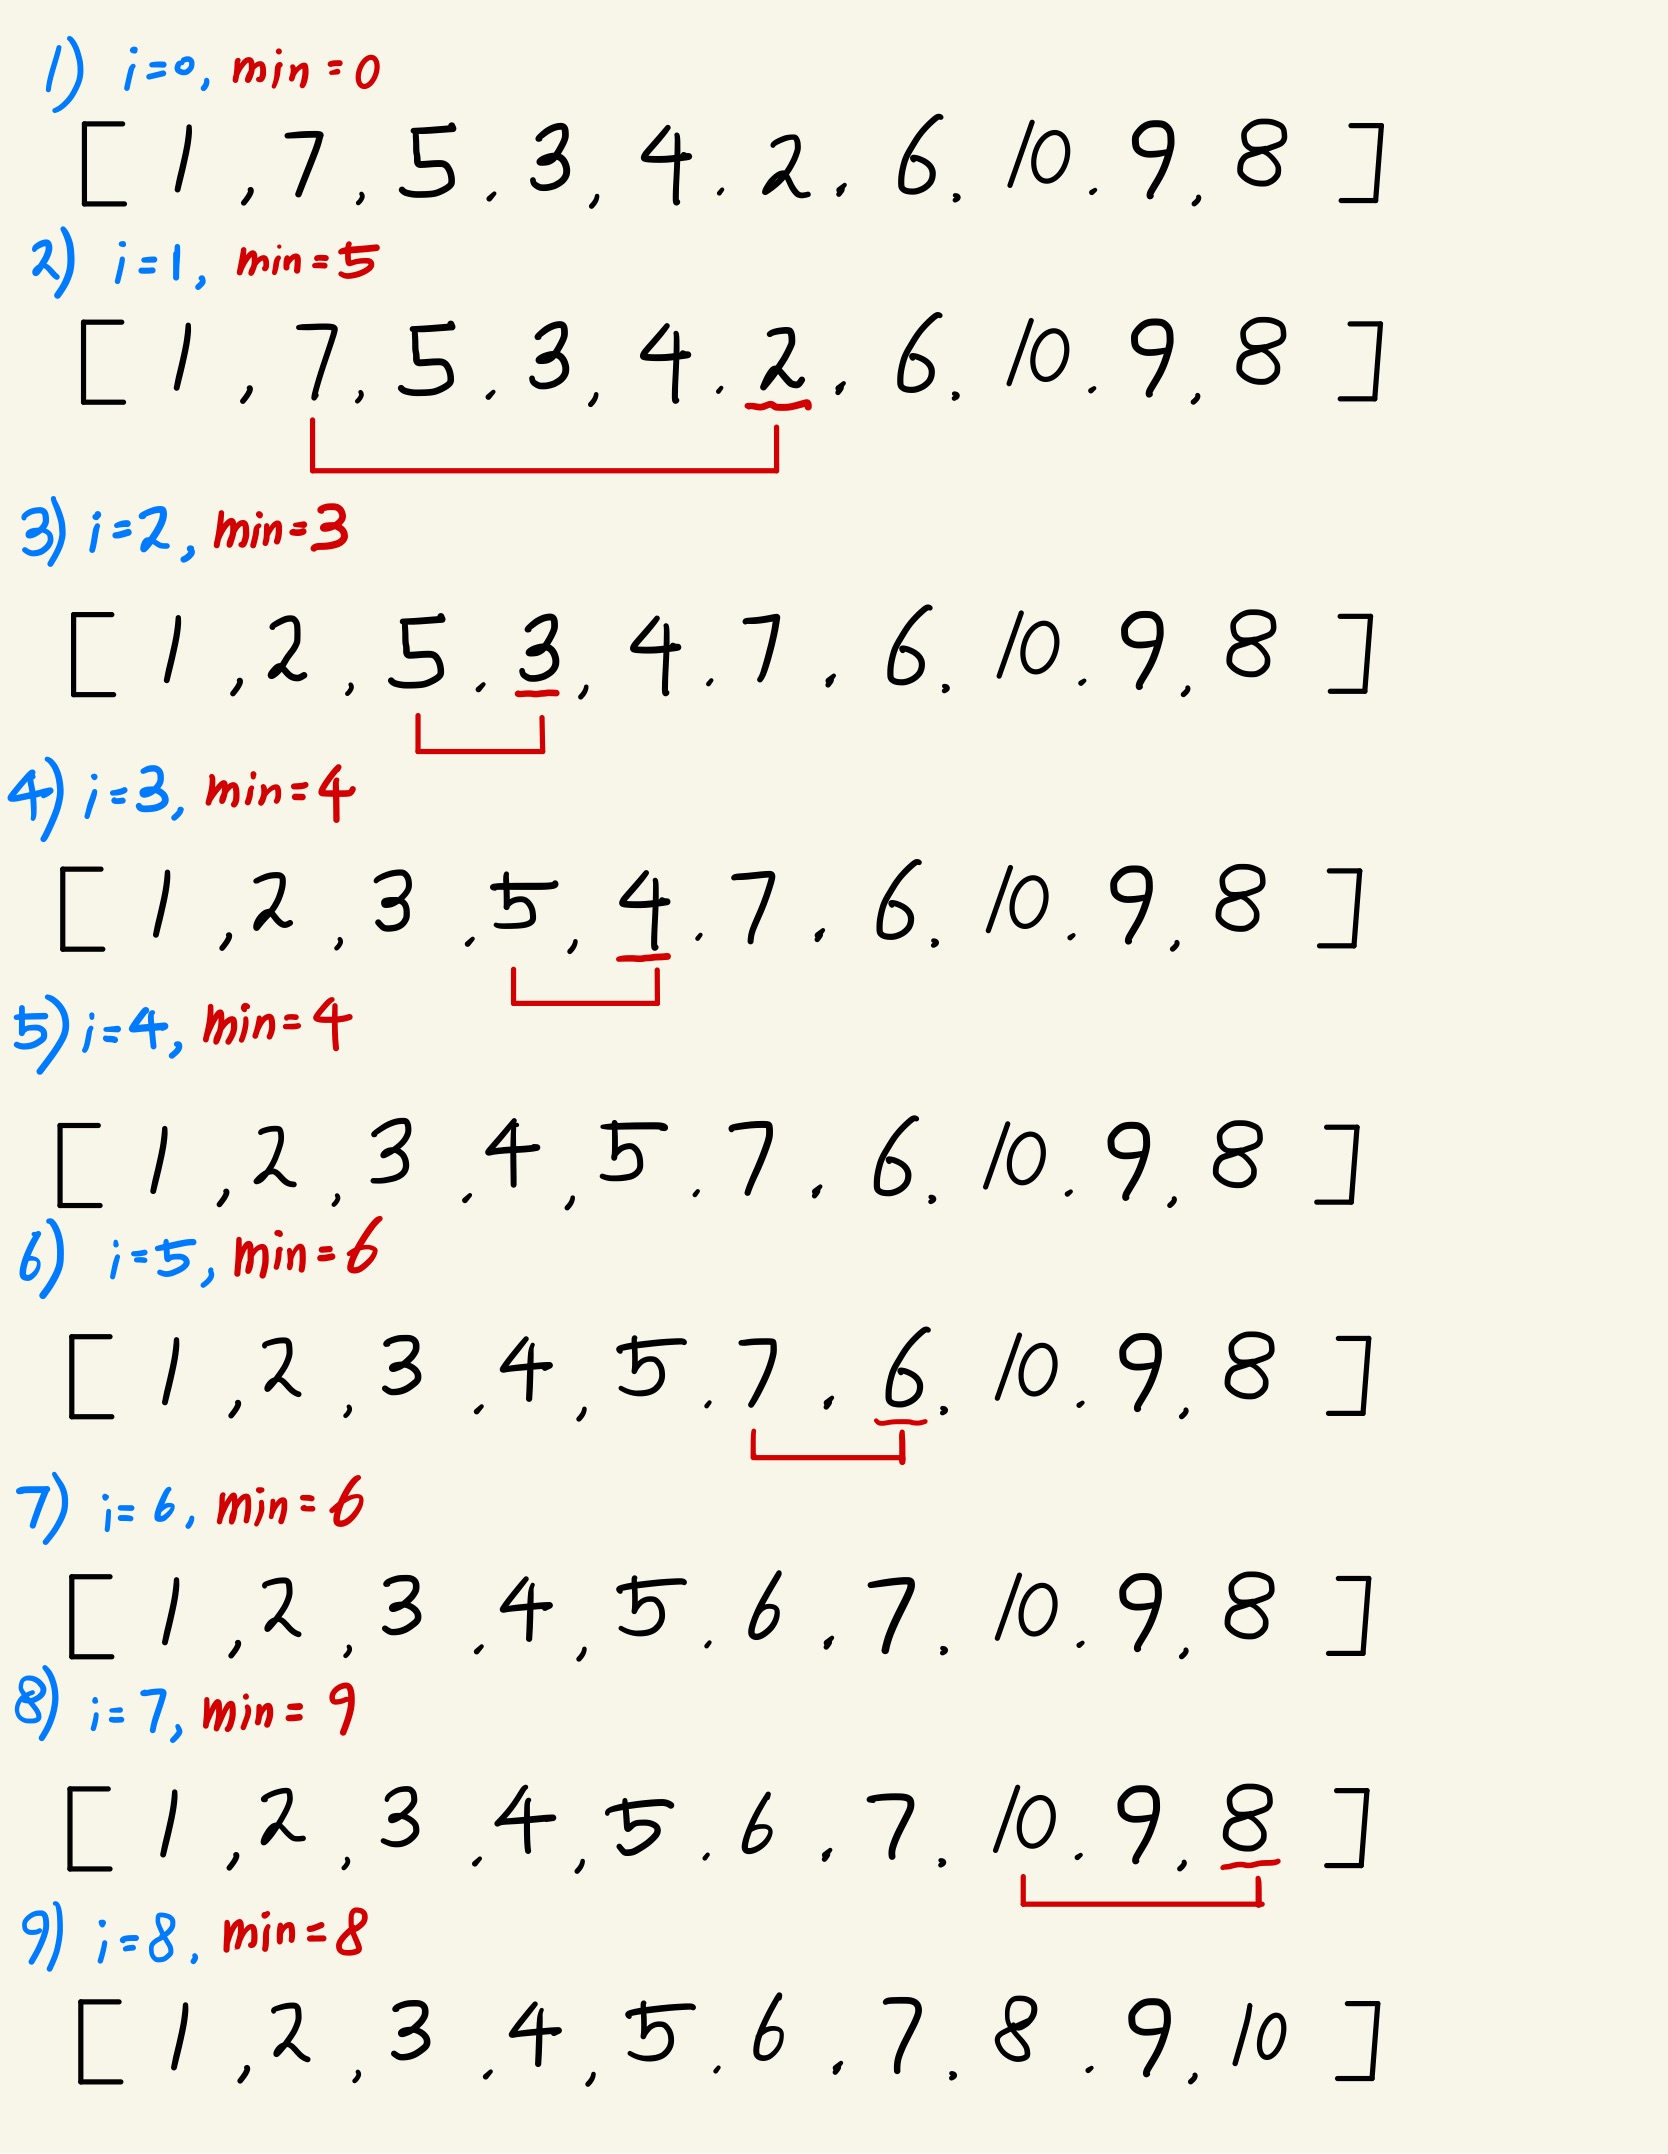 1) i=0, min=0
[ 1 , 7 , 5 . 3 , 4 . 2 . 6 . 10 . 9 , 8 ]
2) i=1, min=5
[ 1 , 7 , 5 . 3 , 4 . 2 . 6 . 10 . 9 , 8 ]
3) i=2, min=3
[ 1 , 2 , 5 . 3 , 4 . 7 . 6 . 10 . 9 , 8 ]
4) i=3, min=4
[ 1 , 2 , 3 . 5 , 4 . 7 . 6 . 10 . 9 , 8 ]
5) i=4, min=4
[ 1 , 2 , 3 . 4 , 5 . 7 . 6 . 10 . 9 , 8 ]
6) i=5, min=6
[ 1 , 2 , 3 . 4 , 5 . 7 . 6 . 10 . 9 , 8 ]
7) i=6, min=6
[ 1 , 2 , 3 . 4 , 5 . 6 . 7 . 10 . 9 , 8 ]
8) i=7, min=9
[ 1 , 2 , 3 . 4 , 5 . 6 . 7 . 10 . 9 , 8 ]
9) i=8, min=8
[ 1 , 2 , 3 . 4 , 5 . 6 . 7 . 8 . 9 , 10 ]